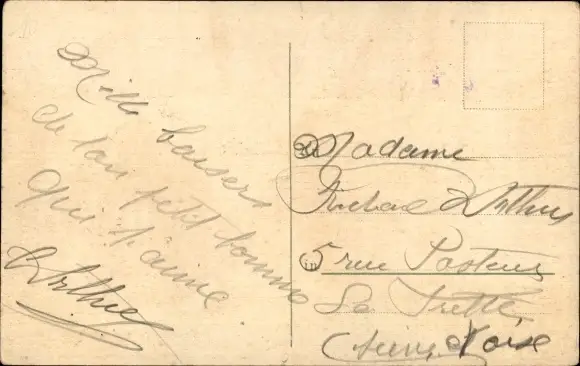 Mille baisers
de ton petit homme
qui t'aime
Madame
5 rue Pasteur
in
La Frette
(Seine et Oise